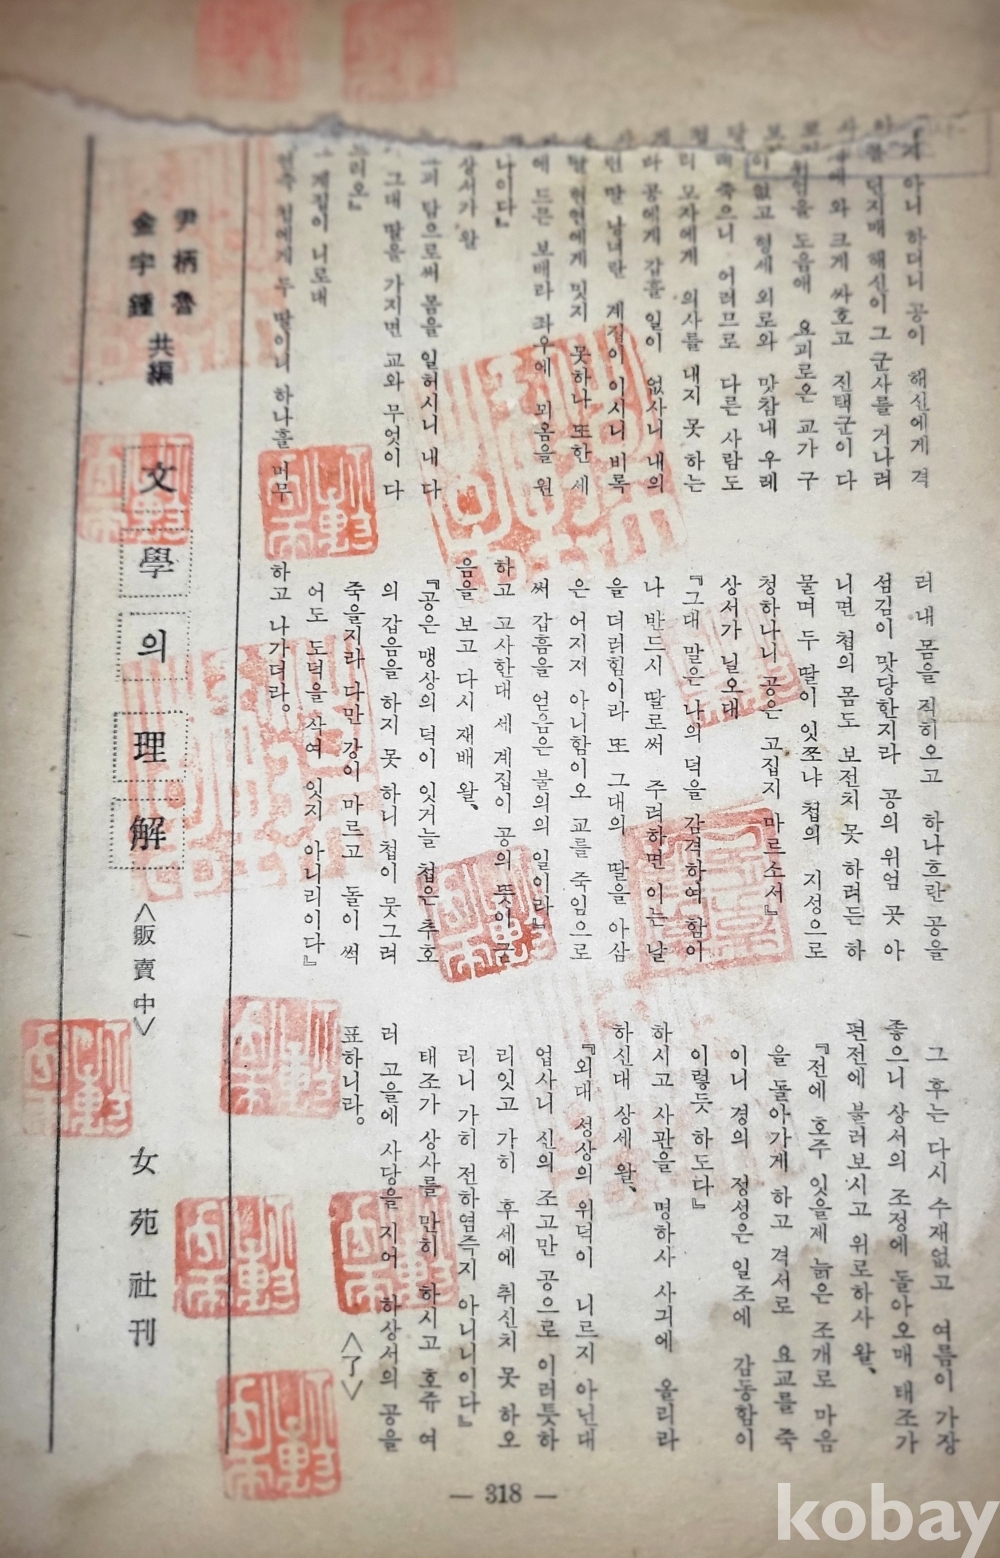 지 아니 하더니 공이 해신에게 격
던지매 해신이 그 군사를 거나려
와 크게 싸호고 진택군이 다
위엄을 도음애 요괴로온 교가 구
없고 형세 외로와 맛참내 우레
죽으니 어려므로 다른 사람도
리 모자에게 의사를 내지 못 하는
라 공에게 갑흘 일이 없사니 내의
던 말 남녀란 계집이 이시니 비록
현연에게 밋지 못하나 또한 세
에 드믄 보배라 좌우에 뫼옴을 원
나이다』
상서가 왈
피 탐으로써 몸을 일허시니 내 다
그대 딸을 가지면 교와 무엇이 다
르리오』
계집이 니로대
두 딸이니 하나흘 머무
러 내 몸을 직히오고 하나흐란 공을
섬김이 맛당한지라 공의 위엄 곳 아
니면 첩의 몸도 보전치 못 하려든 하
물며 두 딸이 잇쪼냐 첩의 지성으로
청하나니 공은 고집지 마르소서』
상서가 닐오대
『그대 말은 나의 덕을 감격하여 함이
나 반드시 딸로써 주려하면 이는 날
을 더러힘이라 또 그대의 딸을 아삼
은 어지저 아니함이오 교를 죽임으로
써 갑흠을 얻음은 불의의 일이라』
하고 고사한대 세 계집이 공의 뜻이 군
음을 보고 다시 재배 왈、
『공은 맹상의 덕이 잇거늘 첩은 추호
의 갑음을 하지 못 하니 첩이 뭇그려
죽을지라 다만 강이 마르고 돌이 썩
어도 도덕을 삭여 잇지 아니리이다』
하고 나가더라。
그 후는 다시 수재없고 여름이 가장
좋으니 상서의 조정에 돌아오매 태조가
편전에 불러보시고 위로하사 왈、
『전에 호주 잇을제 늙은 조개로 마음
을 돌아가게 하고 격서로 요교를 죽
이니 경의 정성은 일조에 감동함이
이렇듯 하도다』
하시고 사관을 명하사 사긔에 올리라
하신대 상세 왈、
『외대 성상의 위덕이 니르지 아닌대
업사니 신의 조고만 공으로 이러틋하
리잇고 가히 후세에 취신치 못 하오
리니 가히 전하염즉지 아니니이다』
태조가 상사를 만히 하시고 호쥬 여
러 고을에 사당을 지어 하상서의 공을
표하니라。
<了>
尹柄魯
金宇鍾
共編
文學의理解
<販賣中>
女苑社刊
— 318 —
kobay